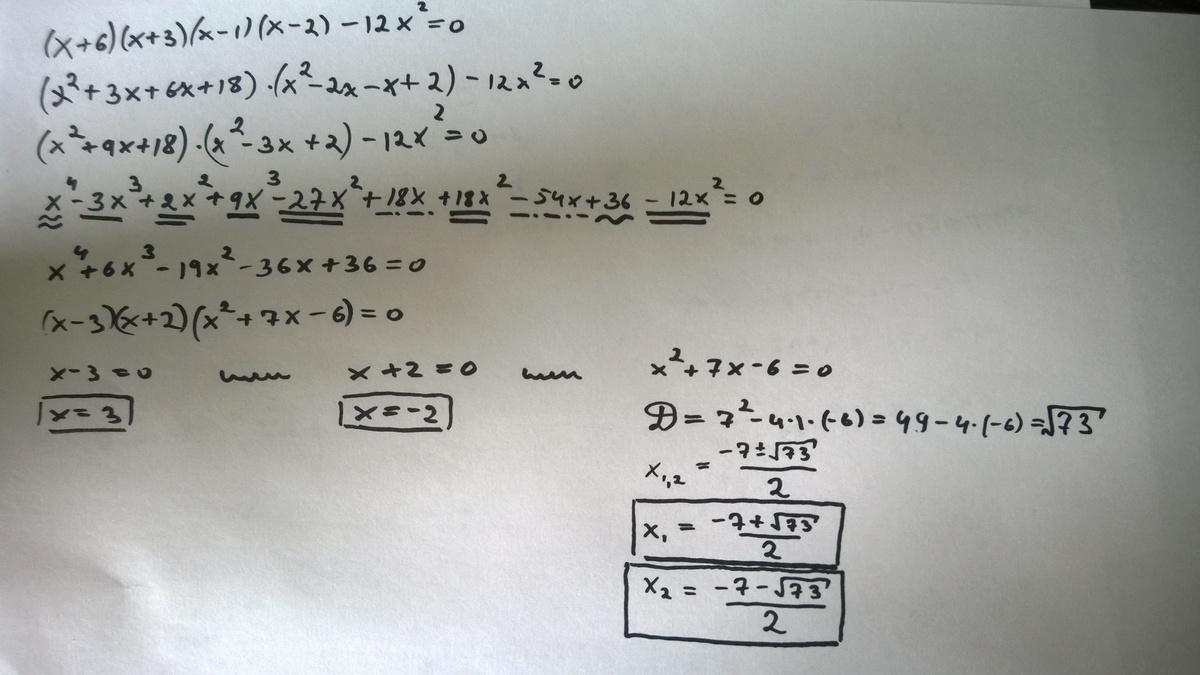 (x+6)(x+3)(x-1)(x-2)-12x²=0
(x²+3x+6x+18)·(x²-2x-x+2)-12x²=0
(x²+9x+18)·(x²-3x+2)-12x²=0
x⁴-3x³+2x²+9x³-27x²+18x+18x²-54x+36-12x²=0
x⁴+6x³-19x²-36x+36=0
(x-3)(x+2)(x²+7x-6)=0
x-3=0 или x+2=0 или x²+7x-6=0
x=3 x=-2 D=7²-4·1·(-6)=49-4·(-6)=√73
x₁,₂ = (-7±√73)/2
x₁ = (-7+√73)/2
x₂ = (-7-√73)/2